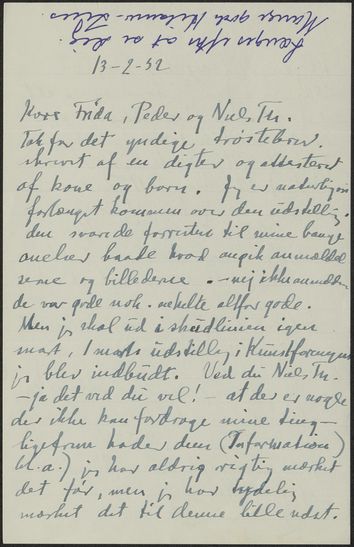 Længes efter at se dig.
Mange gode Hilsener
13-2-52
Kære Frida, Peder og Niels Th.
Tak for det yndige trøstebrev.
skrevet af en digter og attesteret
af kone og barn. Jeg er naturligvis
forlængst kommen over den udstilling,
den svarede forresten til mine bange
anelser baade hvad angik anmeldel
serne og billederne. - nej ikke anmeldel
de var gode nok. enkelte altfor gode.
Men jeg skal ud i skudlinien igen
mart, 1 marts udstilling i Kunstforeningen
jeg blev indbudt. Ved du Niels Th.
- ja det ved du vel! - at der er nogle
der ikke kan fordrage mine ting -
ligefrem hader dem (Information)
bl. a.) jeg har aldrig rigtig mærket
det før, men jeg har tydelig
mærket det til denne lille udst.